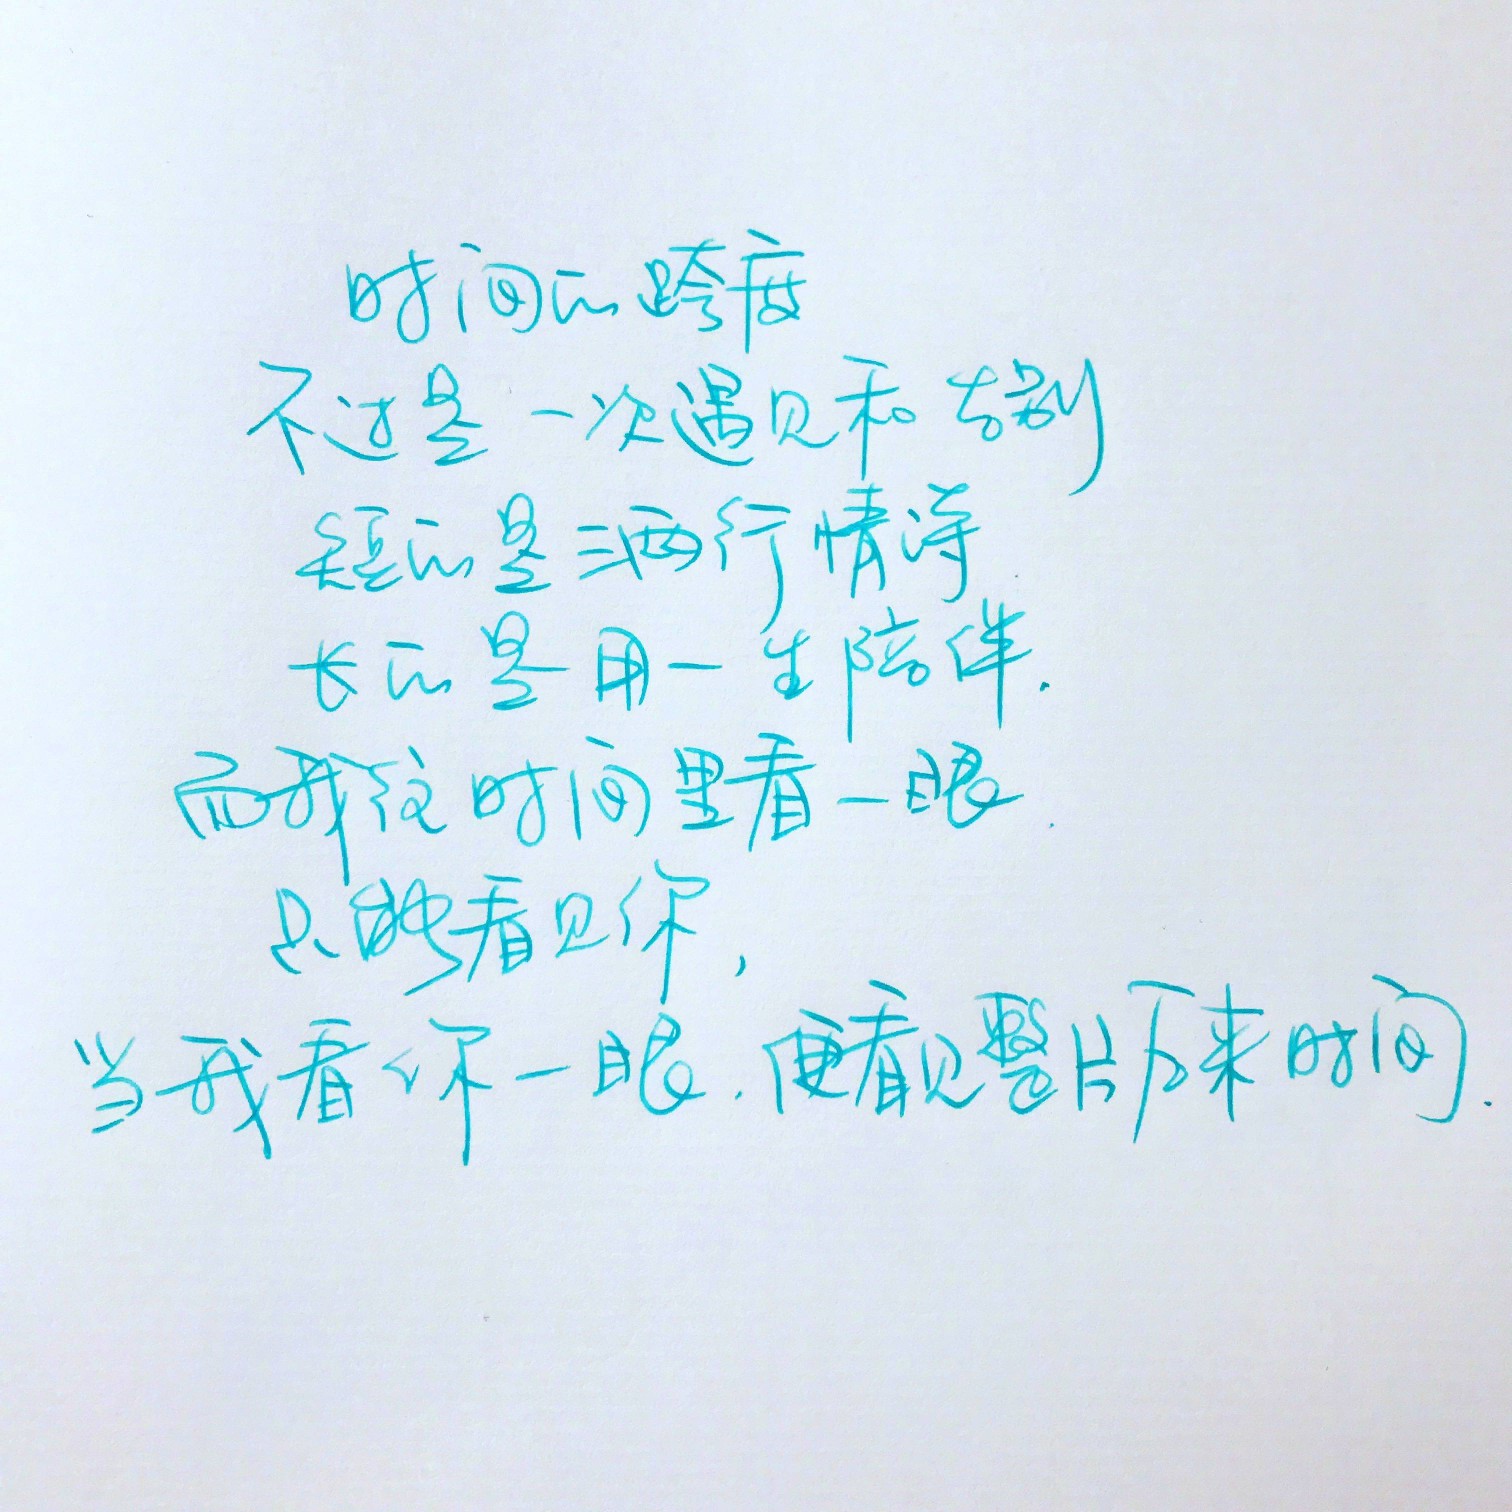 时间的跨度
不过是一次遇见和告别
短的是三两行情诗
长的是用一生陪伴.
而我往时间里看一眼.
只能看见你,
当我看你一眼.便看见整片下来时间.